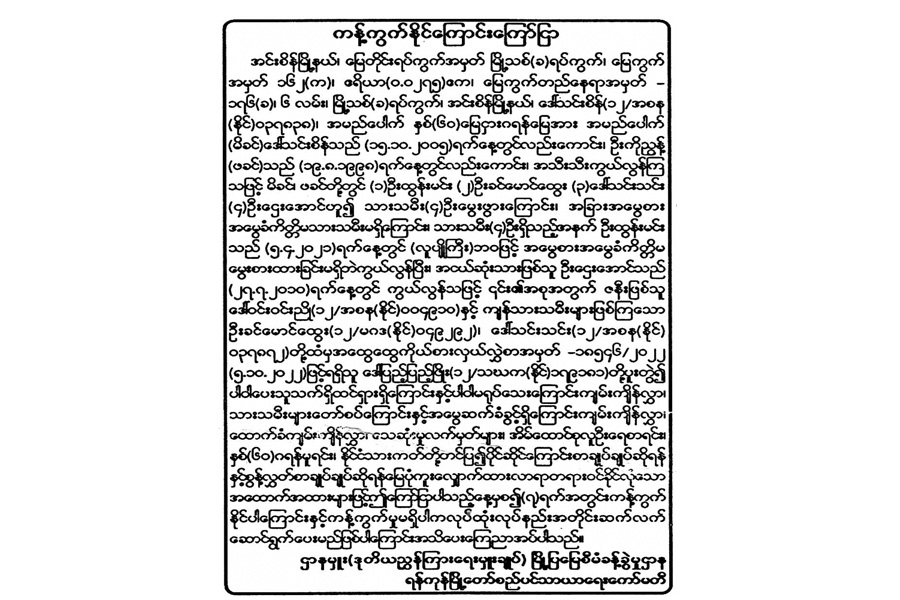 ကန့်ကွက်နိုင်ကြောင်းကြော်ငြာ
အင်းစိန်မြို့နယ်၊ မြေတိုင်းရပ်ကွက်အမှတ် မြို့သစ်(ခ)ရပ်ကွက်၊ မြေကွက်
အမှတ် ၁၆၂(က)၊ ဧရိယာ(ဝ.ဝ၂၇၅)ဧက၊ မြေကွက်တည်နေရာအမှတ် –
၁၇၆(ခ)၊ ၆ လမ်း၊ မြို့သစ်(ခ)ရပ်ကွက်၊ အင်းစိန်မြို့နယ်၊ ဒေါ်သင်းစိန်(၁၂/အစန
(နိုင်)ဝ၃၇၈၃၈)၊ အမည်ပေါက် နှစ်(၆ဝ)မြေငှားဂရန်မြေအား အမည်ပေါက်
(မိခင်)ဒေါ်သင်းစိန်သည် (၁၅.၁ဝ.၂ဝဝ၅)ရက်နေ့တွင်လည်းကောင်း၊ ဦးကိုညွန့်
(ဖခင်)သည် (၁၉.၈.၁၉၉၈)ရက်နေ့တွင်လည်းကောင်း၊ အသီးသီးကွယ်လွန်ကြ
သဖြင့် မိခင်၊ ဖခင်တို့တွင် (၁)ဦးထွန်းမင်း (၂)ဦးခင်မောင်ထွေး (၃)ဒေါ်သင်းသင်း
(၄)ဦးဌေးအောင်ဟူ၍ သားသမီး(၄)ဦးမွေးဖွားကြောင်း၊ အခြားအမွေစား
အမွေခံကိတ္တိမသားသမီးမရှိကြောင်း၊ သားသမီး(၄)ဦးရှိသည့်အနက် ဦးထွန်းမင်း
သည် (၅.၄.၂ဝ၂၁)ရက်နေ့တွင် (လူပျိုကြီး)ဘဝဖြင့် အမွေစားအမွေခံကိတ္တိမ
မွေးစားထားခြင်းမရှိဘဲကွယ်လွန်ပြီး၊ အငယ်ဆုံးသားဖြစ်သူ ဦးဌေးအောင်သည်
(၂၇.၇.၂ဝ၁ဝ)ရက်နေ့တွင် ကွယ်လွန်သဖြင့် ၎င်း၏အစုအတွက် ဇနီးဖြစ်သူ
ဒေါ်ဝင်းဝင်းညို(၁၂/အစန(နိုင်)ဝဝ၄၉၁ဝ)နှင့် ကျန်သားသမီးများဖြစ်ကြသော
ဦးခင်မောင်ထွေး(၁၂/မဂဒ(နိုင်)ဝ၄၉၂၉၂)၊ ဒေါ်သင်းသင်း(၁၂/အစန(နိုင်)
ဝ၃၇၈၇၂)တို့ထံမှအထွေထွေကိုယ်စားလှယ်လွှဲစာအမှတ် –၁၈၅၄၆/၂ဝ၂၂
(၅.၁ဝ.၂ဝ၂၂)ဖြင့်ရရှိသူ ဒေါ်ပြည့်ပြည့်ဖြိုး(၁၂/သဃက(နိုင်)၁၇၉၁၈၁)တို့ပူးတွဲ၍
ပါဝါပေးသူသက်ရှိထင်ရှားရှိကြောင်းနှင့်ပါဝါမရုပ်သေးကြောင်းကျမ်းကျိန်လွှာ၊
သားသမီးများတော်စပ်ကြောင်းနှင့်အမွေဆက်ခံခွင့်ရှိကြောင်းကျမ်းကျိန်လွှာ၊
ထောက်ခံကျမ်းကျိန်လွှာ၊ သေဆုံးမှုလက်မှတ်များ၊ အိမ်ထောင်စုလူဦးရေစာရင်း၊
နှစ်(၆ဝ)ဂရန်မူရင်း၊ နိုင်ငံသားကတ်တို့တင်ပြ၍ပိုင်ဆိုင်ကြောင်းစာချုပ်ချုပ်ဆိုရန်
နှင့်စွန့်လွှတ်စာချုပ်ချုပ်ဆိုရန်မြေပုံကူးလျှောက်ထားလာရာတရားဝင်ခိုင်လုံသော
အထောက်အထားများဖြင့်ဤကြော်ငြာပါသည့်နေ့မှစ၍(၇)ရက်အတွင်းကန့်ကွက်
နိုင်ပါကြောင်းနှင့်ကန့်ကွက်မှုမရှိပါကလုပ်ထုံးလုပ်နည်းအတိုင်းဆက်လက်
ဆောင်ရွက်ပေးမည်ဖြစ်ပါကြောင်းအသိပေးကြေညာအပ်ပါသည်။
ဌာနမှူး(ဒုတိယညွှန်ကြားရေးမှူးချုပ်) မြို့ပြမြေစီမံခန့်ခွဲမှုဌာန
ရန်ကုန်မြို့တော်စည်ပင်သာယာရေးကော်မတီ